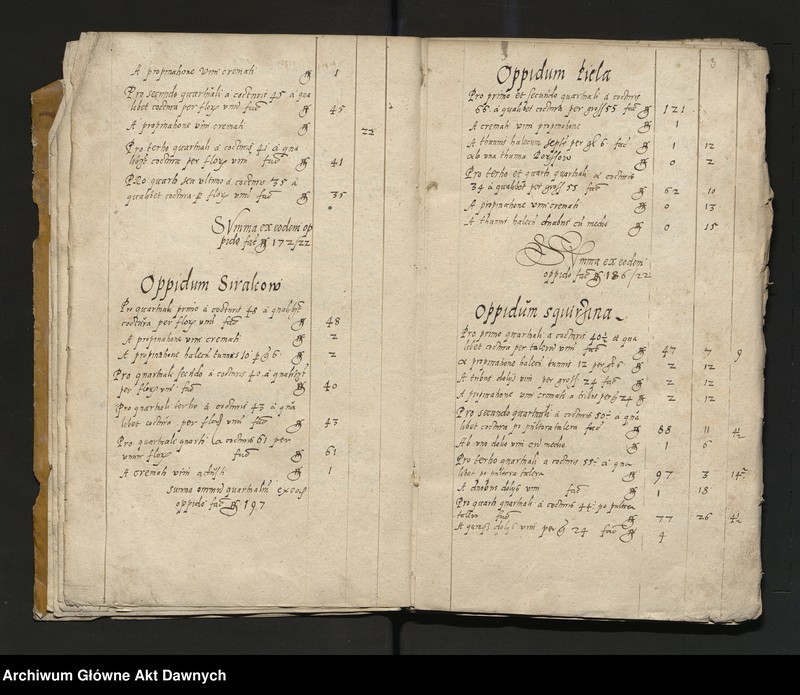 A propinatione vini cremati 1
Pro secundo quartuali a cocturis 45 a qua
libet coctura per flor vnu facit 45
A propinatione vini cremati 22
Pro tertio quartuali a cocturis 41 a qua
libet coctura per flor vnu facit 41
Pro quarto seu ultimo a cocturis 35 a
qualibet coctura p flor vnu facit 35
Summa ex eodem op
pido fac 172/22
Oppidum Sirakow
Pro quartuali primo a cocturis 48 a qualibet
coctura per flor vnu facit 48
A propinatione vini cremati 2
A propinatione halecu tunnis 10 6 2
Pro quartuali secudo a cocturis 40 a qualibet
per flor vnu facit 40
Pro quartuali tertio a cocturis 43 a qua
libet coctura per flor vnu facit 43
Pro quartuali quarti a cocturis 61 per
vnum flor facit 61
A cremati vini 1
Summa omniu quartualiu ex eo
oppido fac 197
3
Oppidum Biela
Pro primo et secundo quartuali a cocturis
66 a qualibet coctura per gross 55 fac 121
A cremati vini propinatione 1
A thunnis halecum septe per 6 fac 1 12
ab vna thunna 0 2
Pro tertio et quarto quartuali a cocturis
34 a qualibet per gross 55 fac 62 10
A propinatione vini cremati 0 13
A thunnis halecu duabus cu medio 0 15
Summa ex eodem
oppido fac 186/22
Oppidum squirzina
Pro primo quartuali a cocturis 40½ a qua
libet coctura per taleru vnu fac 47 7 9
a propinatione halecu tunnis 12 per 6 2 12
A tribus dolys vini per gross 24 fac 2 12
A propinatione vini cremati a tribus per 24 2 12
Pro secundo quartuali a cocturis 50 a qua
libet coctura po pultora talera fac 88 11 4½
Ab vno dolio vini cu medio 1 6
Pro tertio quartuali a cocturis 55 a qua
libet po pultora talera 97 3
A duobus dolys vini fac 1 18
Pro quarto quartuali a cocturis 44 po pultora
talera fac 77 26 4½
A dolys vini per 24 fac 4
Archiwum Główne Akt Dawnych